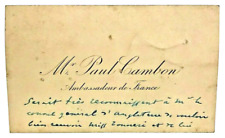 Mr Paul Cambon
Ambassadeur de France
Serait très reconnaissant à Mr le
consul général d'Angleterre de vouloir
bien recevoir Miss et de lui